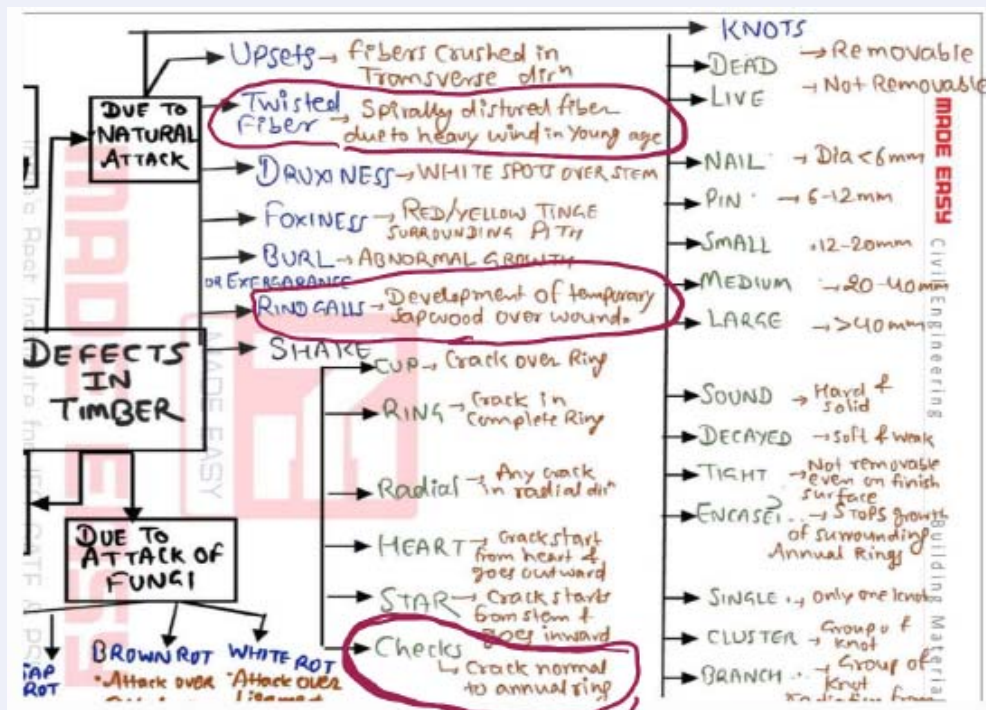 KNOTS
Upsets → Fibers crushed in
Transverse dirⁿ
DUE TO
NATURAL
ATTACK
Twisted
Fiber → Spirally distured fiber
due to heavy wind in Young age
DRUXINESS → WHITE SPOTS OVER STEM
FOXINESS → RED/YELLOW TINGE
SURROUNDING PITH
BURL → ABNORMAL GROWTH
OR EXERGARANCE
RINDGALLS → Development of temporary
sapwood over wound.
DEFECTS
IN
TIMBER
SHAKE
CUP → Crack over Ring
RING → Crack in
Complete Ring
Radial → Any crack
in radial dirⁿ
HEART → Crack start
from heart &
goes outward
STAR → Crack starts
from stem &
goes inward
Checks
↳ Crack normal
to annual ring
DUE TO
ATTACK OF
FUNGI
ROT
BROWN ROT
• Attack over
WHITE ROT
• Attack over
DEAD → Removable
LIVE → Not Removable
NAIL → Dia < 6mm
PIN → 6-12mm
SMALL .12-20mm
MEDIUM → 20-40mm
LARGE → >40mm
SOUND → Hard &
solid
DECAYED → Soft & weak
TIGHT → Not removable
even on finish
surface
→ STOPS growth
of surrounding
Annual Rings
SINGLE → only one knot
CLUSTER → Group of
Knot
BRANCH → Group of
Knot
MADE EASY
Civil Engineering
Building Material
MADE EASY
MADE EASY